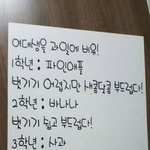 여대생을 과일에 비유!
1학년 : 파인애플
벗기기 어렵지만 새콤달콤 부드럽다!
2학년 : 바나나
벗기기 쉽고 부드럽다!
3학년 : 사과